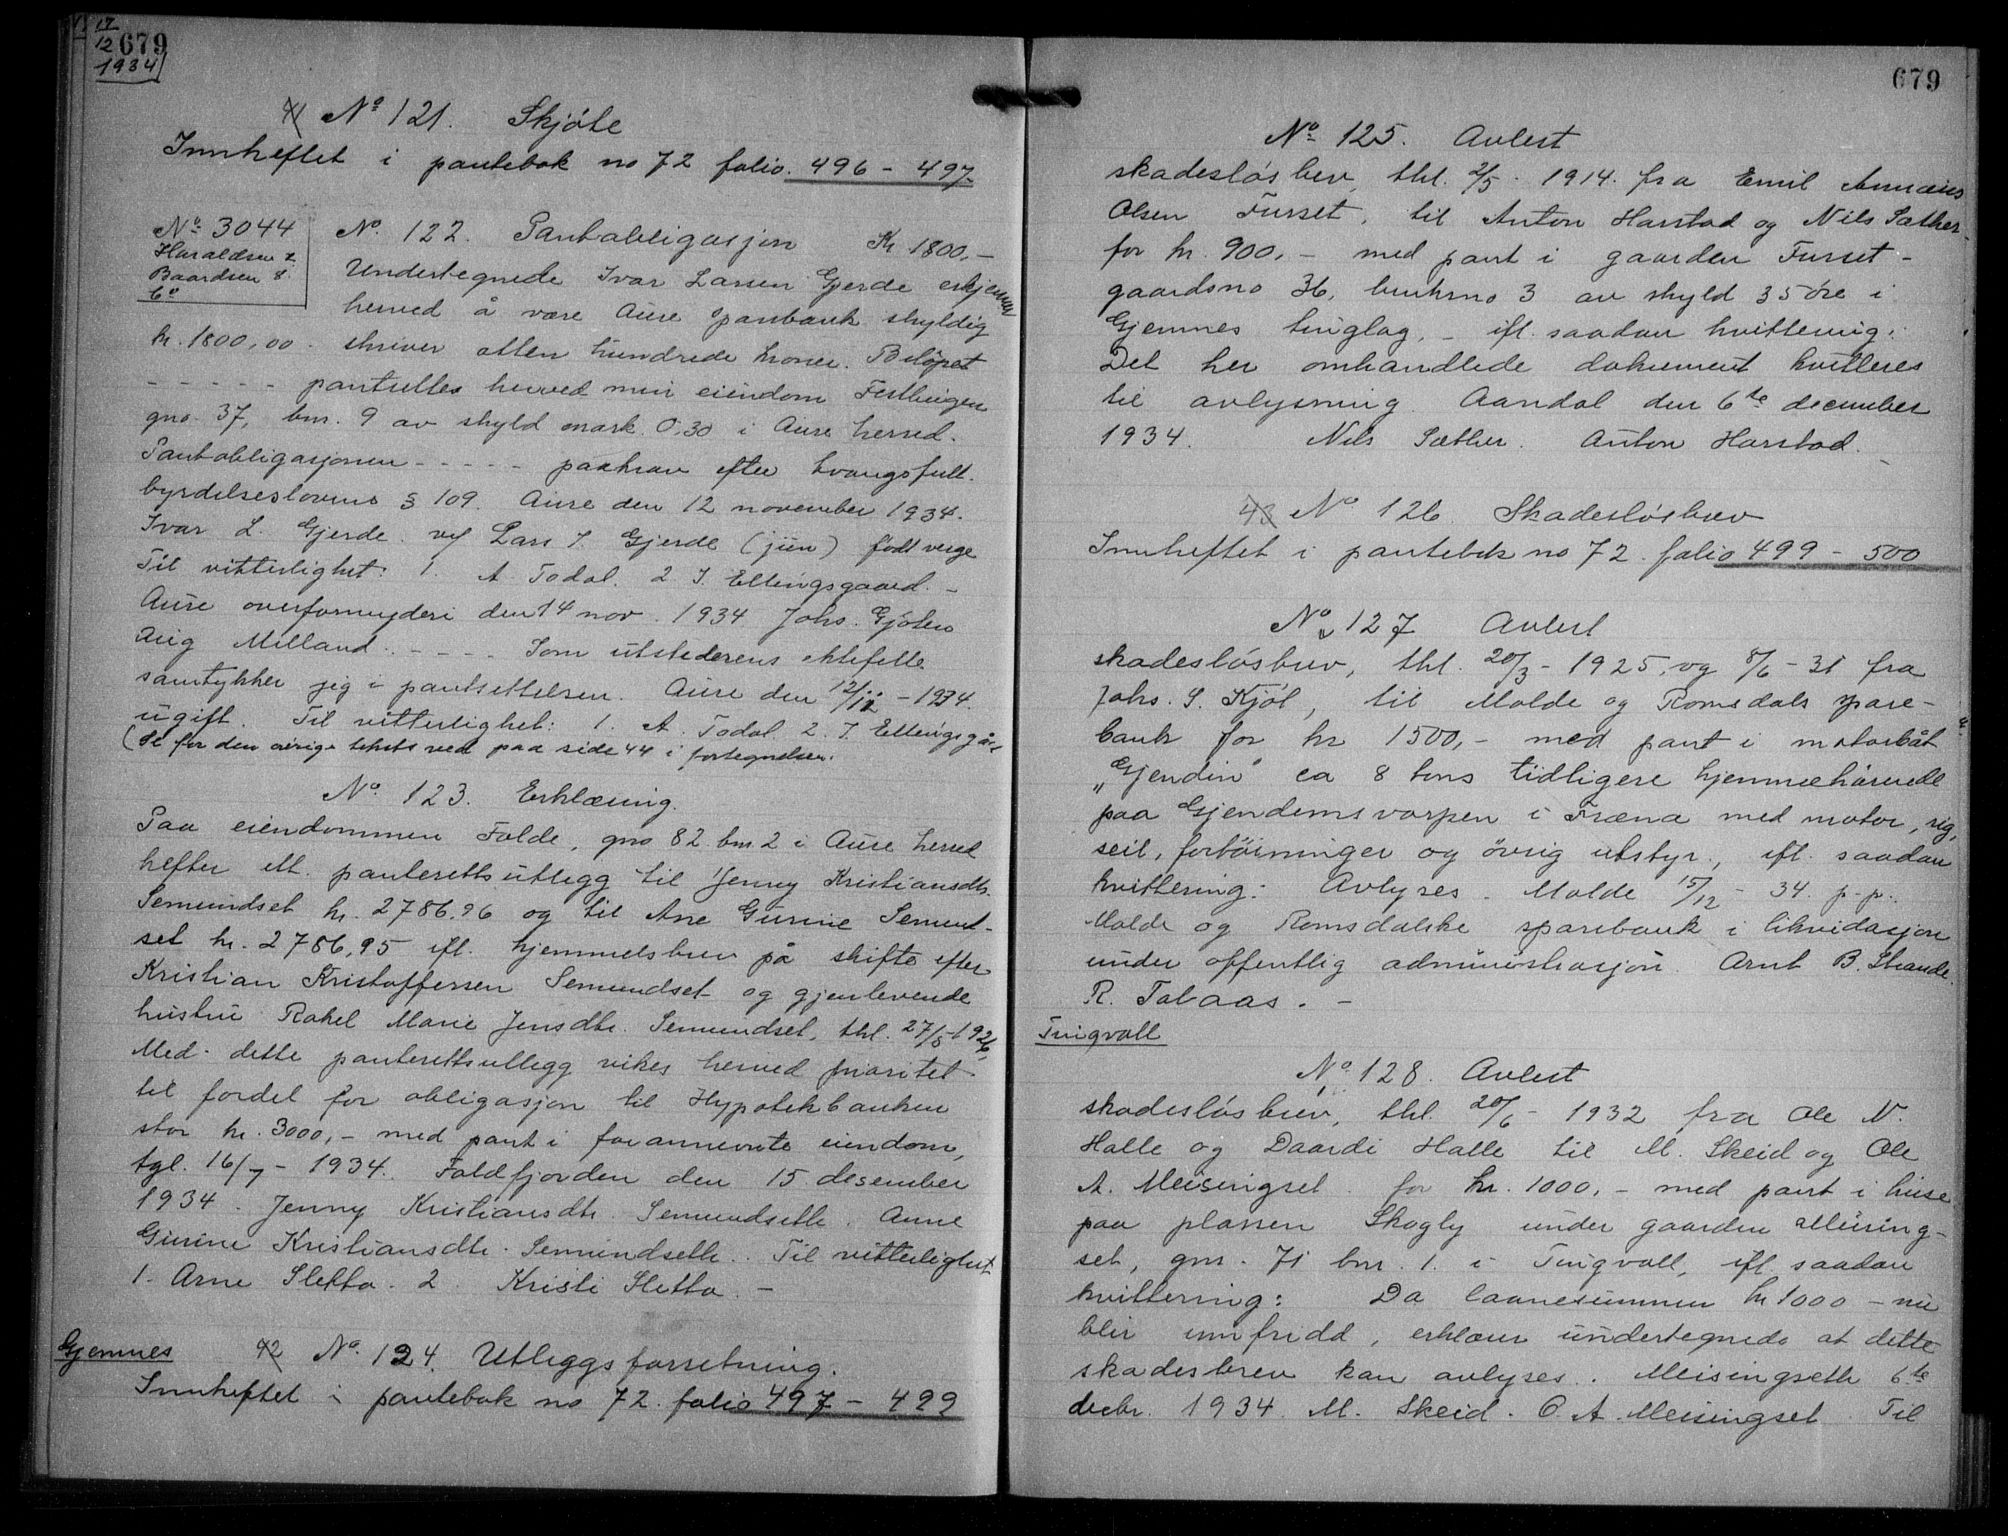 17/12 1934
679
41 No 121. Skjöte
Innheftet i pantebok no 72 folio 496 - 497.
No 3044
Haraldsen &
Baardsen &
Co
No. 122. Pantobligasjon Kr 1800,-
Undertegnede Ivar Larsen Gjerde erkjenner
herved å være Aure sparebank skyldig
kr. 1800,00 - skriver atten hundrede kroner. Belöpet
- - - - - pantsettes herved min eiendom Festbingen
gno. 37, bnr. 9 av skyld mark 0,30 i Aure herred.
Pantobligasjonen - - - - - paakrav efter tvangsfull-
byrdelseslovens § 109. Aure den 12 november 1934.
Ivar L. Gjerde. v/ Lars I. Gjerde (jun) född verge
Til vitterlighet: 1. A. Todal. 2 I. Ellingsgaard. -
Aure overformynderi den 14 nov. 1934 Johs. Gjöten
Aug Milland. - - - - Som utstederens ektefelle
samtykker jeg i pantsettelsen. Aure den 12/11 - 1934.
ugift. Til vitterlighet: 1. A. Todal 2. I. Ellingsgård
(Se for den övrige tekst ved paa side 44 i fortegnelsen.
No. 123. Erklæring.
Paa eiendommen Folde, gno 82 bnr. 2 i Aure herred
hefter ett. panterettsutlegg til Jenny Kristiansdtr.
Semundset kr. 2786.96 og til Ane Gurine Semund-
set kr. 2786,95 ifl. hjemmelsbrev på skifte efter
Kristian Kristoffersen Semundset og gjenlevende
hustru Rakel Marie Jensdtr. Semundset, thl. 27/5-1926.
Med dette panterettsutlegg vikes herved prioritet
til fordel for obligasjon til Hypotekbanken
stor kr. 3000,- med pant i forannevnte eiendom,
tgl. 16/7 - 1934. Foldfjorden den 15 desember
1934. Jenny Kristiansdtr. Semundseth. Anne
Gurine Kristiansdtr. Semundseth. Til vitterlighet
1. Arne Sletta. 2 Kristi Sletta. -
Gjemnes 42 No. 124. Utleggsforretning.
Innheftet i pantebok no 72. folio 497 - 499
679
No 125. Avlest
skadeslösbrev, thl. 2/5 - 1914. fra Emil Annæus
Olsen Furset, til Anton Harstad og Nils Sæther
for kr. 900,- med pant i gaarden Furset -
gaardsno 36, bruksno 3 av skyld 35 öre i
Gjemnes tinglag, - ifl. saadan kvittering:
Det her omhandlede dokument kvitteres
til avlysning. Aandal den 6te december
1934. Nils Sæther. Anton Harstad.
43 No 126. Skadeslösbrev
Innheftet i pantebok no 72. folio 499 - 500
No 127 Avlest
skadeslösbrev, thl. 20/3 - 1925, og 8/6 - 31 fra
Johs. S. Kjöl, til Molde og Romsdals spare-
bank for kr 1500,- med pant i motorbåt
„Gjendin" ca 8 tons tidligere hjemmehörende
paa Gjendemsvarpen i Fræna med motor, rig,
seil, fortöininger og övrig utstyr, ifl. saadan
kvittering: Avlyses. Molde 15/12 - 34. p.p.
Molde og Romsdalske sparebank i likvidasjon
under offentlig administrasjon. Arnt B. Strande.
R. Tobaas. -
Tingvoll
No 128. Avlest
skadeslösbrev, thl. 20/6 - 1932 fra Ole N.
Halle og Daardi Halle til M. Skeid og Ole
A. Meisingset for kr. 1000,- med pant i huse
paa plassen Skogly under gaarden Meising-
set, gnr. 71 bnr. 1. i Tingvoll, ifl. saadan
kvittering: Da laanesummen kr 1000 - nu
blir innfridd, erklærer undertegnede at dette
skadesbrev kan avlyses. Meisingseth 6.te
decbr. 1934. M. Skeid. O. A. Meisingset. Til